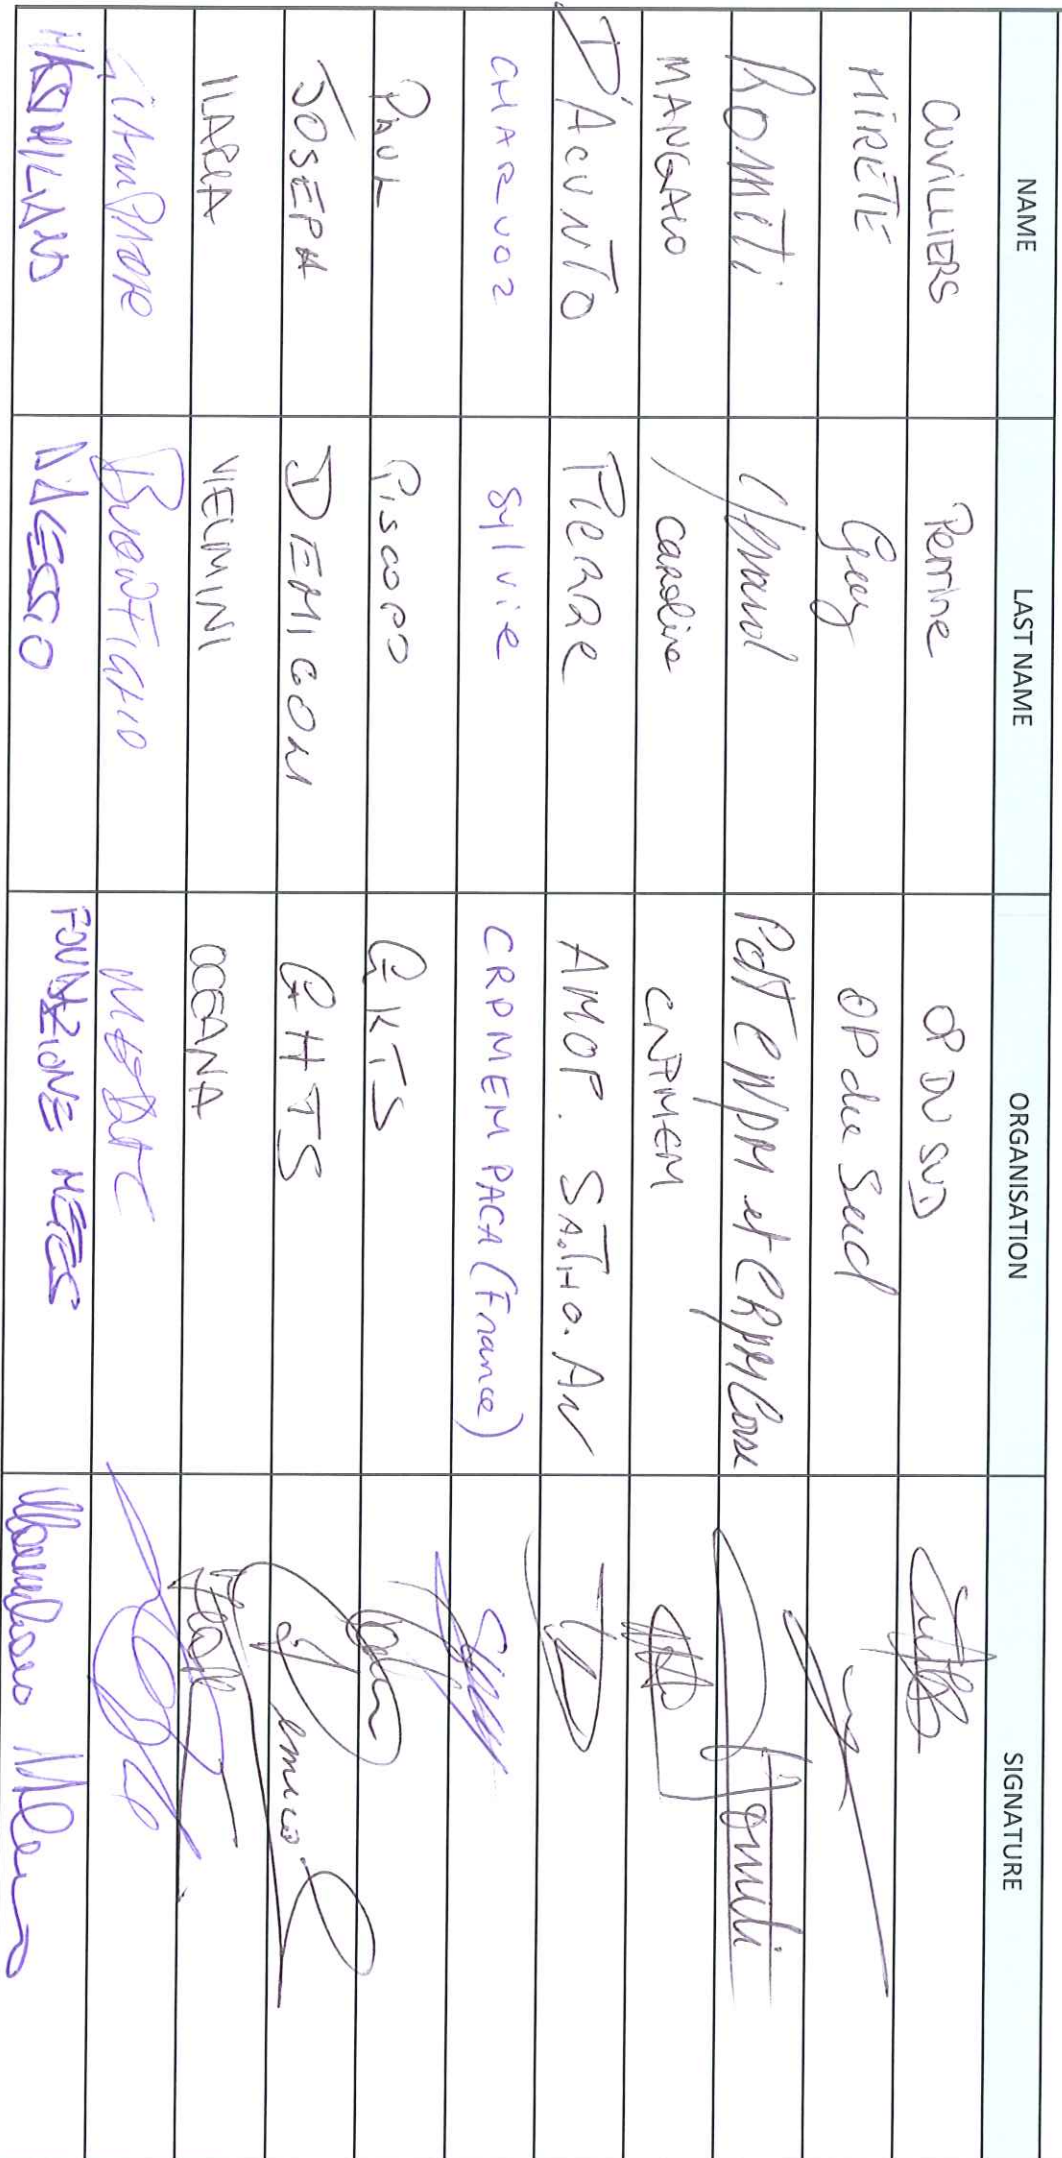 NAME LAST NAME ORGANISATION SIGNATURE
CUVILLIERS Perrine OP DU SUD
MIRETE Guy OP du Sud
ROMITI Gérard CNPMEM et CRPM Corse
MANGALO Caroline CNPMEM
D'ACUNTO PIERRE AMOP. SA.THO.AN
CHARVOZ Sylvie CRPMEM PACA (France)
PAUL PISCOPO GKTS
JOSEPH DEMICOLI GHTS
ILARIA VIELMINI OCEANA
GIAMPAOLO BUONFIGLIO MEDAC
MASSIMILIANO D'ALESSIO FONDAZIONE METES